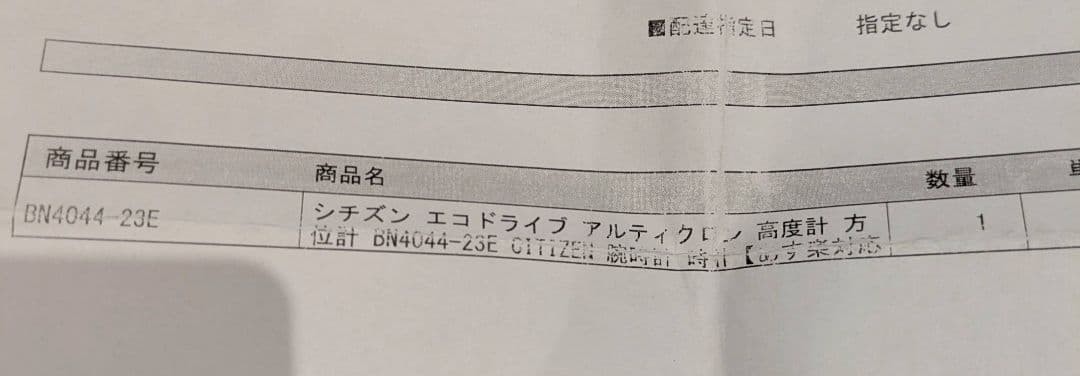 配達指定日 指定なし
商品番号 商品名 数量
BN4044-23E シチズン エコドライブ アルティクロン 高度計 方 1
位計 BN4044-23E CITIZEN 腕時計 時計【あす楽対応